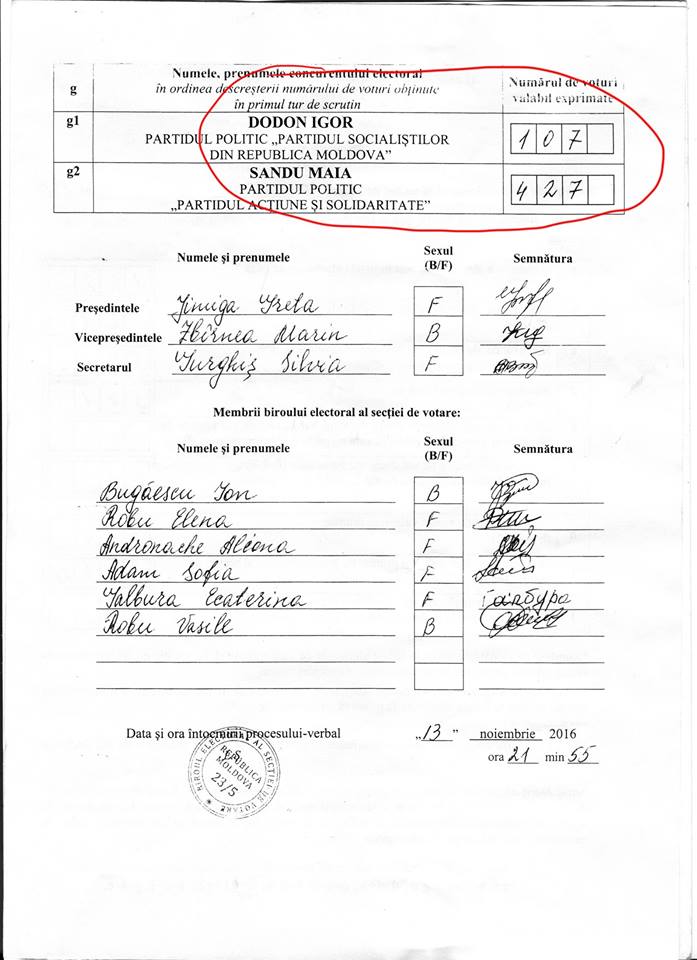 g
Numele, prenumele concurentului electoral
în ordinea descreșterii numărului de voturi obținute
în primul tur de scrutin
Numărul de voturi
valabil exprimate
g1
DODON IGOR
PARTIDUL POLITIC „PARTIDUL SOCIALIȘTILOR
DIN REPUBLICA MOLDOVA”
1 0 7
g2
SANDU MAIA
PARTIDUL POLITIC
„PARTIDUL ACȚIUNE ȘI SOLIDARITATE”
4 2 7
Numele și prenumele Sexul (B/F) Semnătura
Președintele Jimiga Greta F
Vicepreședintele Zbîrnea Marin B
Secretarul Gurghiș Silvia F
Membrii biroului electoral al secției de votare:
Numele și prenumele Sexul (B/F) Semnătura
Bugăescu Ion B
Robu Elena F
Andronache Aliona F
Adam Sofia F
Galbura Ecaterina F Галбура
Robu Vasile B
Data și ora întocmirii procesului-verbal „13” noiembrie 2016
ora 21 min 55
BIROUL ELECTORAL AL SECȚIEI DE VOTARE
REPUBLICA
MOLDOVA
23/5